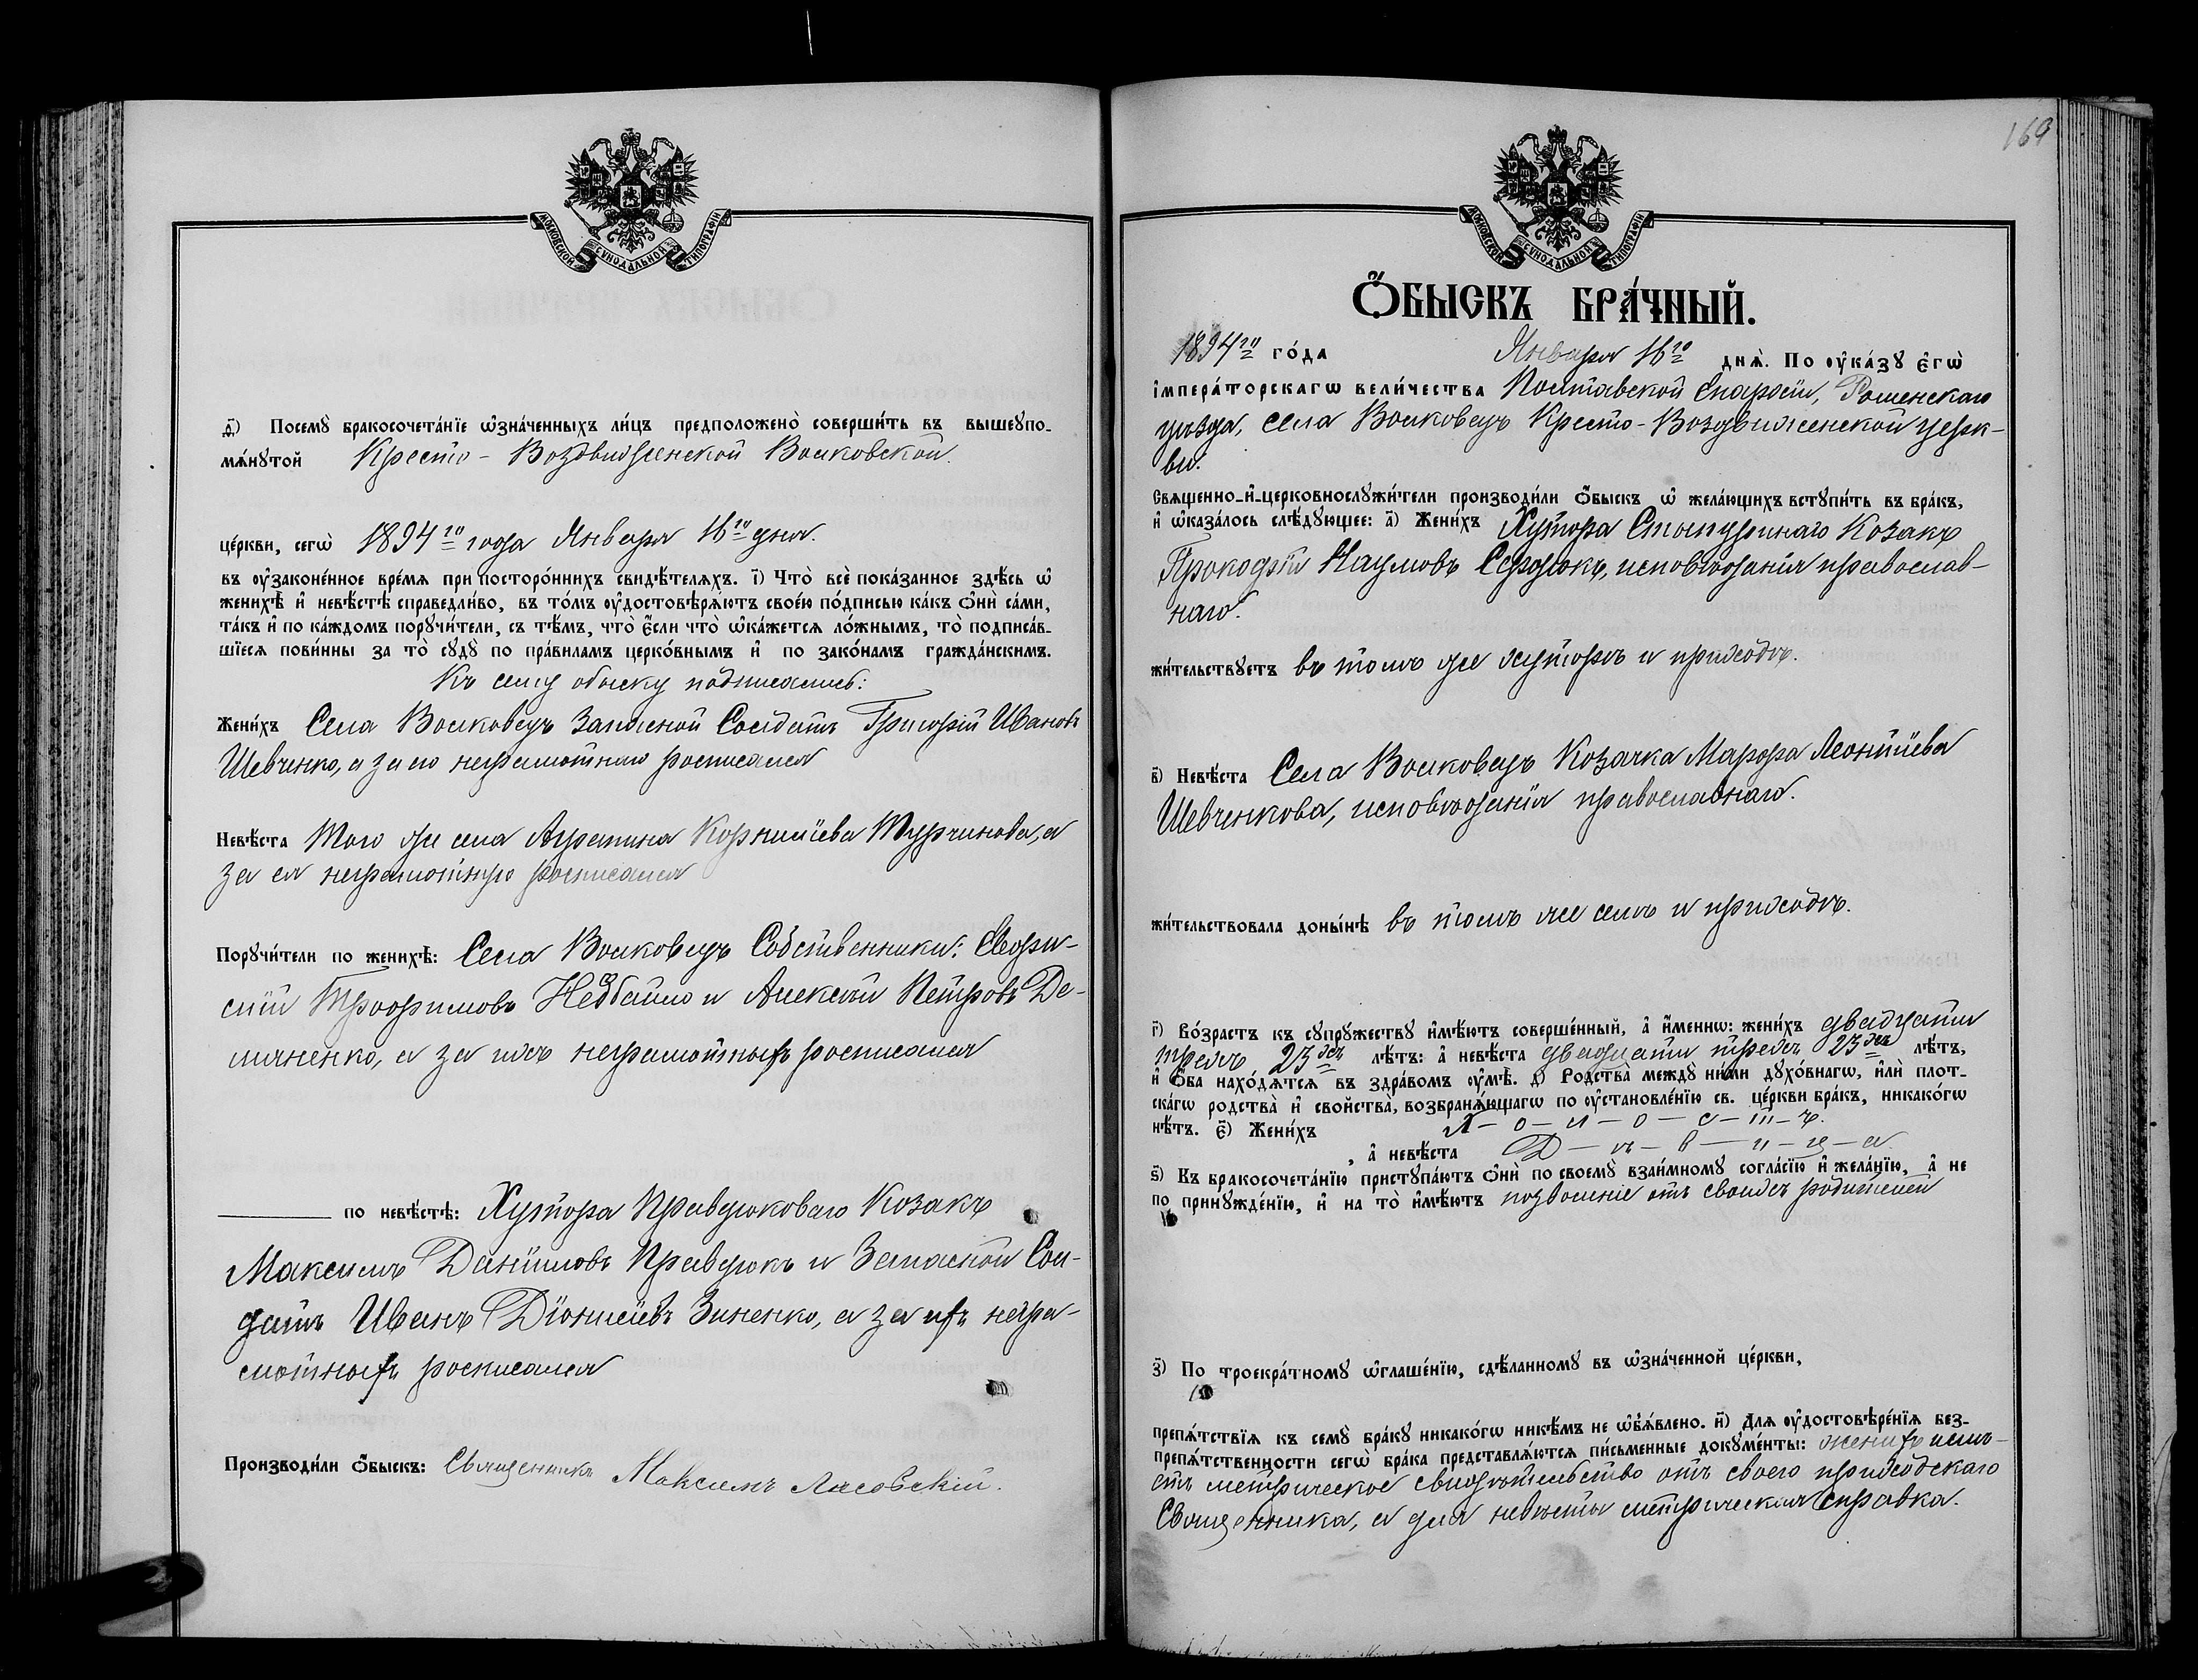 МОСКОВСКОЙ СѴНОДАЛЬНОЙ ТИПОГРАФІИ
д҃) Посемꙋ̀ бракосочета́нїе ѡ҆зна́ченныхъ ли́цъ предположено̀ соверши́ть въ вышеꙋпо-
мѧ́нꙋтой Кресто-Воздвиженской Волковской
це́ркви, сегѡ̀ 1894го года Января 16го дня.
въ ᲂу҆зако́ненное вре́мѧ при посторо́ннихъ свидѣ́телѧхъ. і҃) Что̀ всѐ пока́занное здѣ́сь ѡ҆
женихѣ̀ и҆ невѣ́стѣ справедли́во, въ то́мъ ᲂу҆достовѣрѧ́ютъ свое́ю по́дписью ка́къ ѻ҆нѝ са́ми,
та́къ и҆ по ка́ждомъ порꙋчи́тели, съ тѣ́мъ, что̀ є҆́сли что̀ ѡ҆ка́жетсѧ ло́жнымъ, то̀ подписа́в-
шїесѧ пови́нны за то̀ сꙋдꙋ̀ по пра́виламъ церко́внымъ и҆ по зако́намъ гражда́нскимъ.
Къ сему обыску подписались:
Жени́хъ Села Волковецъ Запасной Солдатъ Григорій Ивановъ
Шевченко, а за его неграмотнаго росписался
Невѣ́ста Того же села Агрепина Корнилїева Турчинова, а
за ея неграмотную росписался
Порꙋчи́тели по женихѣ̀: Села Волковецъ Собственники:
Трофимовъ Недбайло и Алексѣй Петровъ Де-
мяненко, а за ихъ неграмотныхъ росписался
по невѣ́стѣ: Хутора Правдюковаго Козакъ
Максимъ Данїиловъ Правдюкъ и Запасной Сол-
датъ Иванъ Дїонисїевъ Зиненко, а за ихъ негра-
мотныхъ росписался
Производи́ли ѻ҆́быскъ: Священникъ Максимъ Лисовскій.
169
МОСКОВСКОЙ СѴНОДАЛЬНОЙ ТИПОГРАФІИ
Ѻ҆́БЫСКЪ БРА́ЧНЫЙ.
1894го го́да Января 16го днѧ̀. По ᲂу҆ка́зꙋ є҆гѡ̀
і҆мпера́торскагѡ вели́чества Полтавской Епархіи, Роменскаго
уѣзда, села Волковецъ Кресто-Воздвиженской церк-
ви.
Свѧщенно-и҆-церковнослꙋжи́тели производи́ли ѻ҆́быскъ ѡ҆ жела́ющихъ встꙋпи́ть въ бра́къ,
и҆ ѡ҆каза́лось слѣ́дꙋющее: а҃) Жени́хъ Хутора Козакъ
Прокофій Наумовъ Сердюкъ, исповѣданія православ-
наго.
жи́тельствꙋетъ въ томъ же хуторѣ и приходѣ.
в҃) Невѣ́ста Села Волковецъ Козачка Марфа Леонтїева
Шевченкова, исповѣданія православнаго.
жи́тельствовала доны́нѣ въ томъ же селѣ и приходѣ.
г҃) Во́зрастъ къ сꙋпрꙋ́жествꙋ и҆мѣ́ютъ соверше́нный, а҆ и҆́меннѡ: жени́хъ двадцати
трехъ 23хъ лѣ́тъ: а҆ невѣ́ста двадцати трехъ 23хъ лѣ́тъ,
и҆ ѻ҆́ба нахо́дѧтсѧ въ здра́вомъ ᲂу҆мѣ̀. д҃) Родства̀ междꙋ ни́ми дꙋхо́внагѡ, и҆лѝ плот-
ска́гѡ родства̀ и҆ свойства̀, возбранѧ́ющагѡ по ᲂу҆становле́нїю св. це́ркви бра́къ, никако́гѡ
нѣ́тъ. є҃) Жени́хъ Х-о-л-о-с-т-ъ.
, а҆ невѣ́ста Д-ѣ-в-и-ц-а
ѕ҃) Къ бракосочета́нїю пристꙋпа́ютъ ѻ҆нѝ по своемꙋ̀ взаи́мномꙋ согла́сїю и҆ жела́нїю, а҆ не
по принꙋжде́нїю, и҆ на то̀ и҆мѣ́ютъ позволеніе отъ своихъ родителей
з҃) По троекра́тномꙋ ѡ҆глаше́нїю, сдѣ́ланномꙋ въ ѡ҆зна́ченной це́ркви,
препѧ́тствїѧ къ семꙋ̀ бра́кꙋ никако́гѡ никѣ́мъ не ѡ҆б̾ѧ́влено. и҃) Для ᲂу҆достовѣре́нїѧ без-
препѧ́тственности сегѡ̀ бра́ка представлѧ́ютсѧ пи́сьменные докꙋме́нты: женихъ имѣ-
етъ метрическое свидѣтельство отъ своего приходскаго
Священника, а для невѣсты метрическая справка.